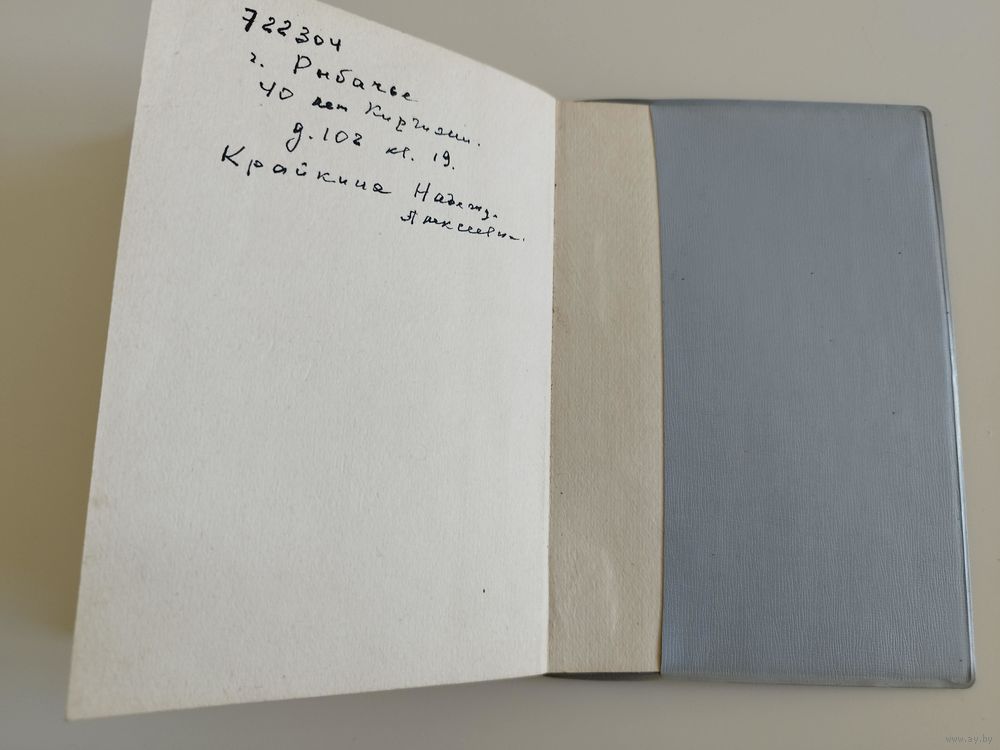 722304
г. Рыбачье
40 лет Киргизии.
д. 108 кв. 19.
Крайкина Надежд.
Алексеевн.
www.ay.by